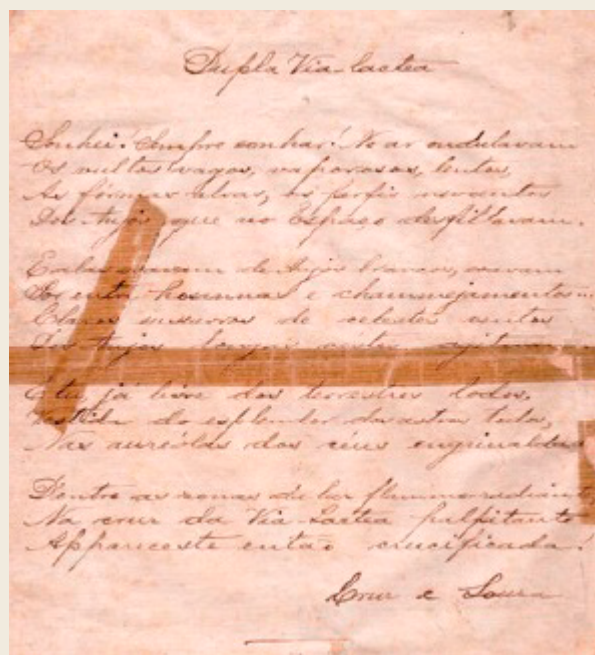 Dupla Via-Lactea
Sonhei! Sempre sonhar! No ar ondulavam
Os vultos vagos, vaporosos, lentos,
As fórmas alvas, os perfis nevoentos
Dos Anjos que no Espaço desfillavam.
E alas voavam de Anjos brancos, voavam
Por entre hosannas e chammejamentos...
Claros sussurros de celestes ventos
Dos Anjos longas vestes agitavam.
E tu, já livre dos terrestres lodos,
Vestida do esplendor dos astros todos,
Nas auréolas dos céus engrinaldada
Dentre as zonas de luz flammo-radiante,
Na cruz da Via-Lactea palpitante
Appareceste então crucificada!
Cruz e Souza